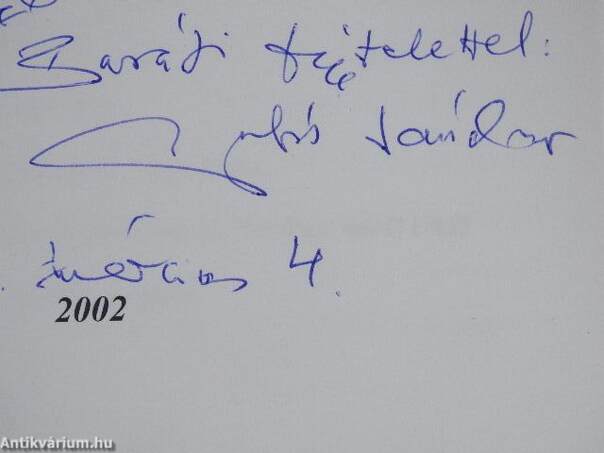 Baráti tisztelettel:
Sándor
március 4.
2002
Antikvárium.hu